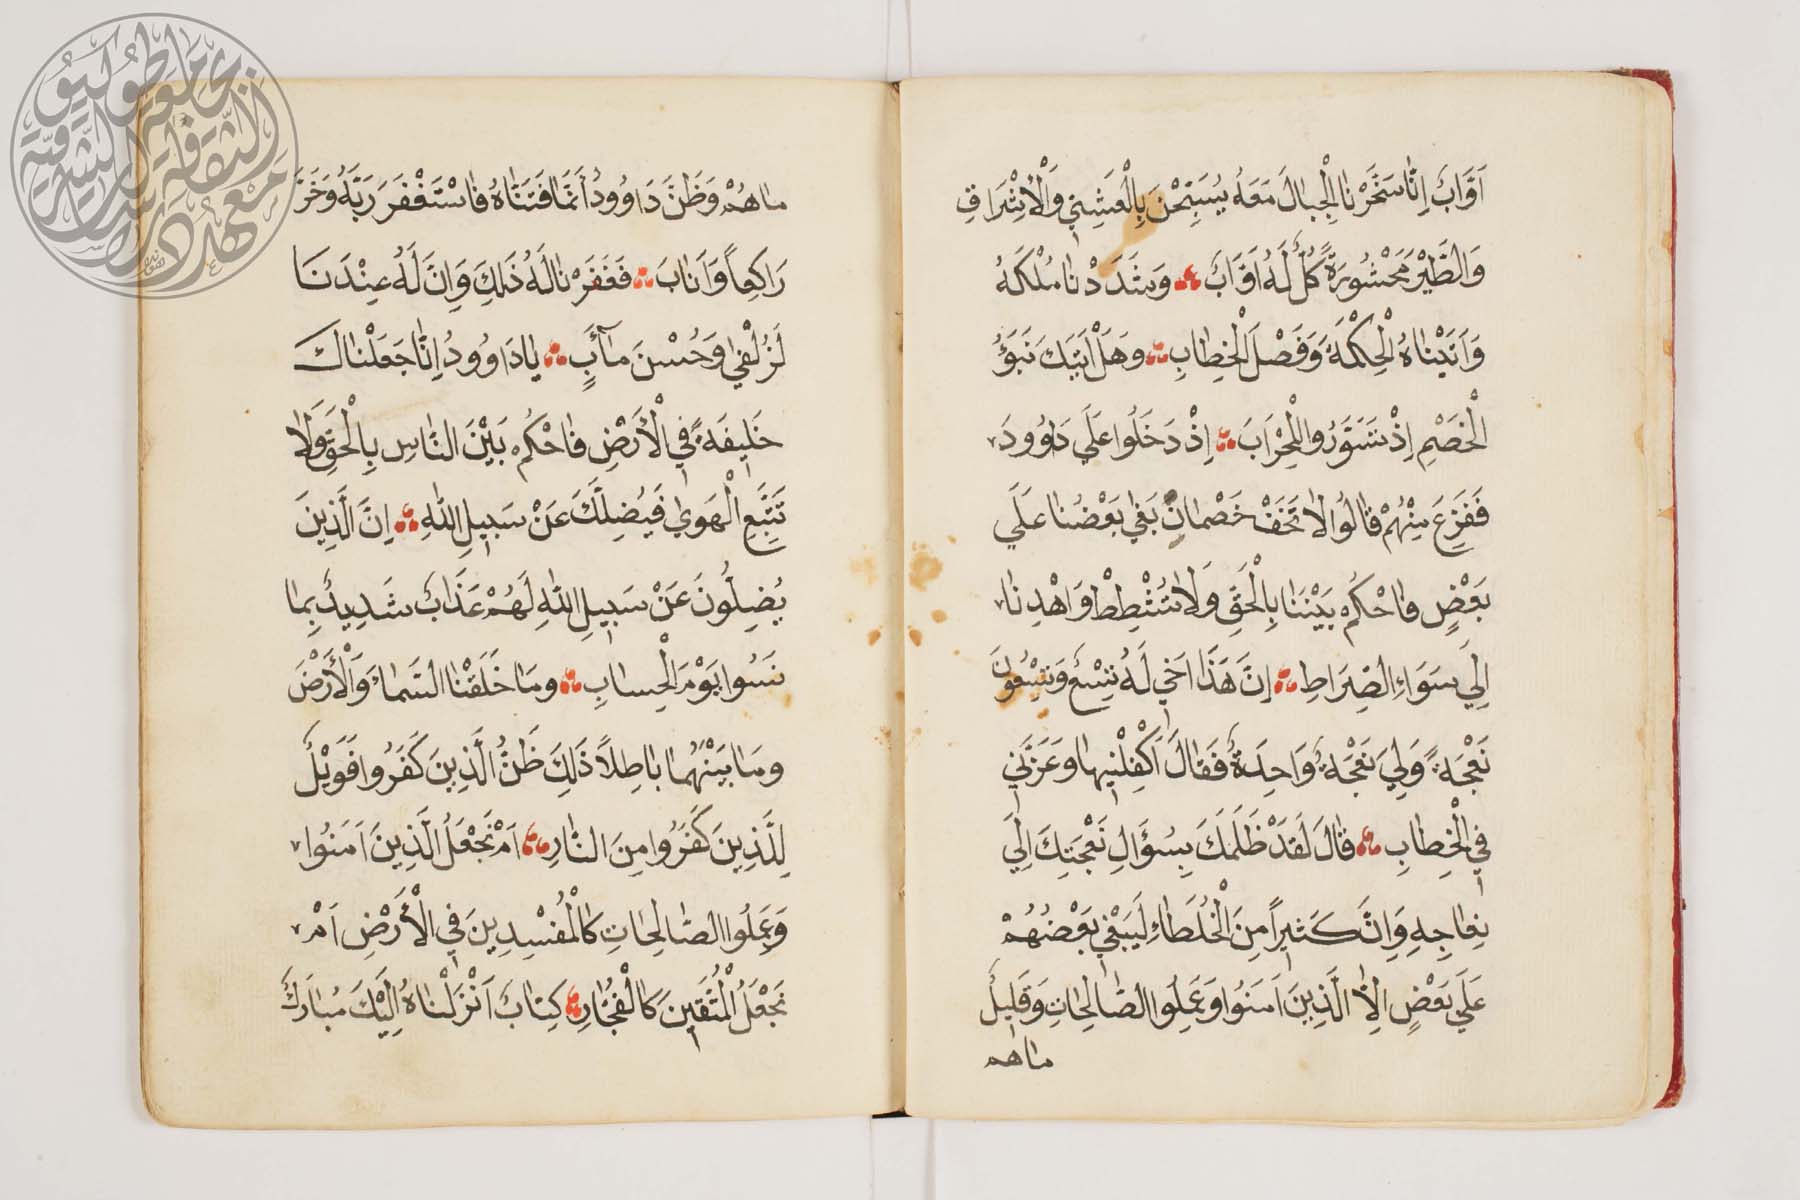 اَوَّابٌ اِنَّا سَخَّرْنَا الْجِبَالَ مَعَهُ يُسَبِّحْنَ بِالْعَشِيِّ وَالْاِشْرَاقِ
وَالطَّيْرَ مَحْشُورَةً كُلٌّ لَهُ اَوَّابٌ وَشَدَدْنَا مُلْكَهُ
وَاَتَيْنَاهُ الْحِكْمَةَ وَفَصْلَ الْخِطَابِ وَهَلْ اَتَيكَ نَبَؤُ
الْخَصْمِ اِذْ تَسَوَّرُوا الْمِحْرَابَ اِذْ دَخَلُوا عَلَي دَاوُودَ
فَفَزِعَ مِنْهُمْ قَالُوا لَا تَخَفْ خَصْمَانِ بَغَي بَعْضُنَا عَلَي
بَعْضٍ فَاحْكُمْ بَيْنَنَا بِالْحَقِّ وَلَا تُشْطِطْ وَاهْدِنَا
اِلَي سَوَاءِ الصِّرَاطِ اِنَّ هَذَا اَخِي لَهُ تِسْعٌ وَتِسْعُونَ
نَعْجَةً وَلِيَ نَعْجَةٌ وَاحِدَةٌ فَقَالَ اَكْفِلْنِيهَا وَعَزَّنِي
فِي الْخِطَابِ قَالَ لَقَدْ ظَلَمَكَ بِسُؤَالِ نَعْجَتِكَ اِلَي
نِعَاجِهِ وَاِنَّ كَثِيرًا مِنَ الْخُلَطَاءِ لَيَبْغِي بَعْضُهُمْ
عَلَي بَعْضٍ اِلَّا الَّذِينَ اَمَنُوا وَعَمِلُوا الصَّالِحَاتِ وَقَلِيلٌ
ماهم
مَاهُمْ وَظَنَّ دَاوُودُ اَنَّمَا فَتَنَّاهُ فَاسْتَغْفَرَ رَبَّهُ وَخَرَّ
رَاكِعًا وَاَنَابَ فَغَفَرْنَا لَهُ ذَلِكَ وَاِنَّ لَهُ عِنْدَنَا
لَزُلْفَي وَحُسْنَ مَأَبٍ يَادَاوُودُ اِنَّا جَعَلْنَاكَ
خَلِيفَةً فِي الْأَرْضِ فَاحْكُمْ بَيْنَ النَّاسِ بِالْحَقِّ وَلَا
تَتَّبِعِ الْهَوَي فَيُضِلَّكَ عَنْ سَبِيلِ اللَّهِ اِنَّ الَّذِينَ
يُضِلُّونَ عَنْ سَبِيلِ اللَّهِ لَهُمْ عَذَابٌ شَدِيدٌ بِمَا
نَسُوا يَوْمَ الْحِسَابِ وَمَا خَلَقْنَا السَّمَاءَ وَالْأَرْضَ
وَمَا بَيْنَهُمَا بَاطِلًا ذَلِكَ ظَنُّ الَّذِينَ كَفَرُوا فَوَيْلٌ
لِلَّذِينَ كَفَرُوا مِنَ النَّارِ اَمْ نَجْعَلُ الَّذِينَ اَمَنُوا
وَعَمِلُوا الصَّالِحَاتِ كَالْمُفْسِدِينَ فِي الْأَرْضِ اَمْ
نَجْعَلُ الْمُتَّقِينَ كَالْفُجَّارِ كِتَابٌ اَنْزَلْنَاهُ اِلَيْكَ مُبَارَكٌ